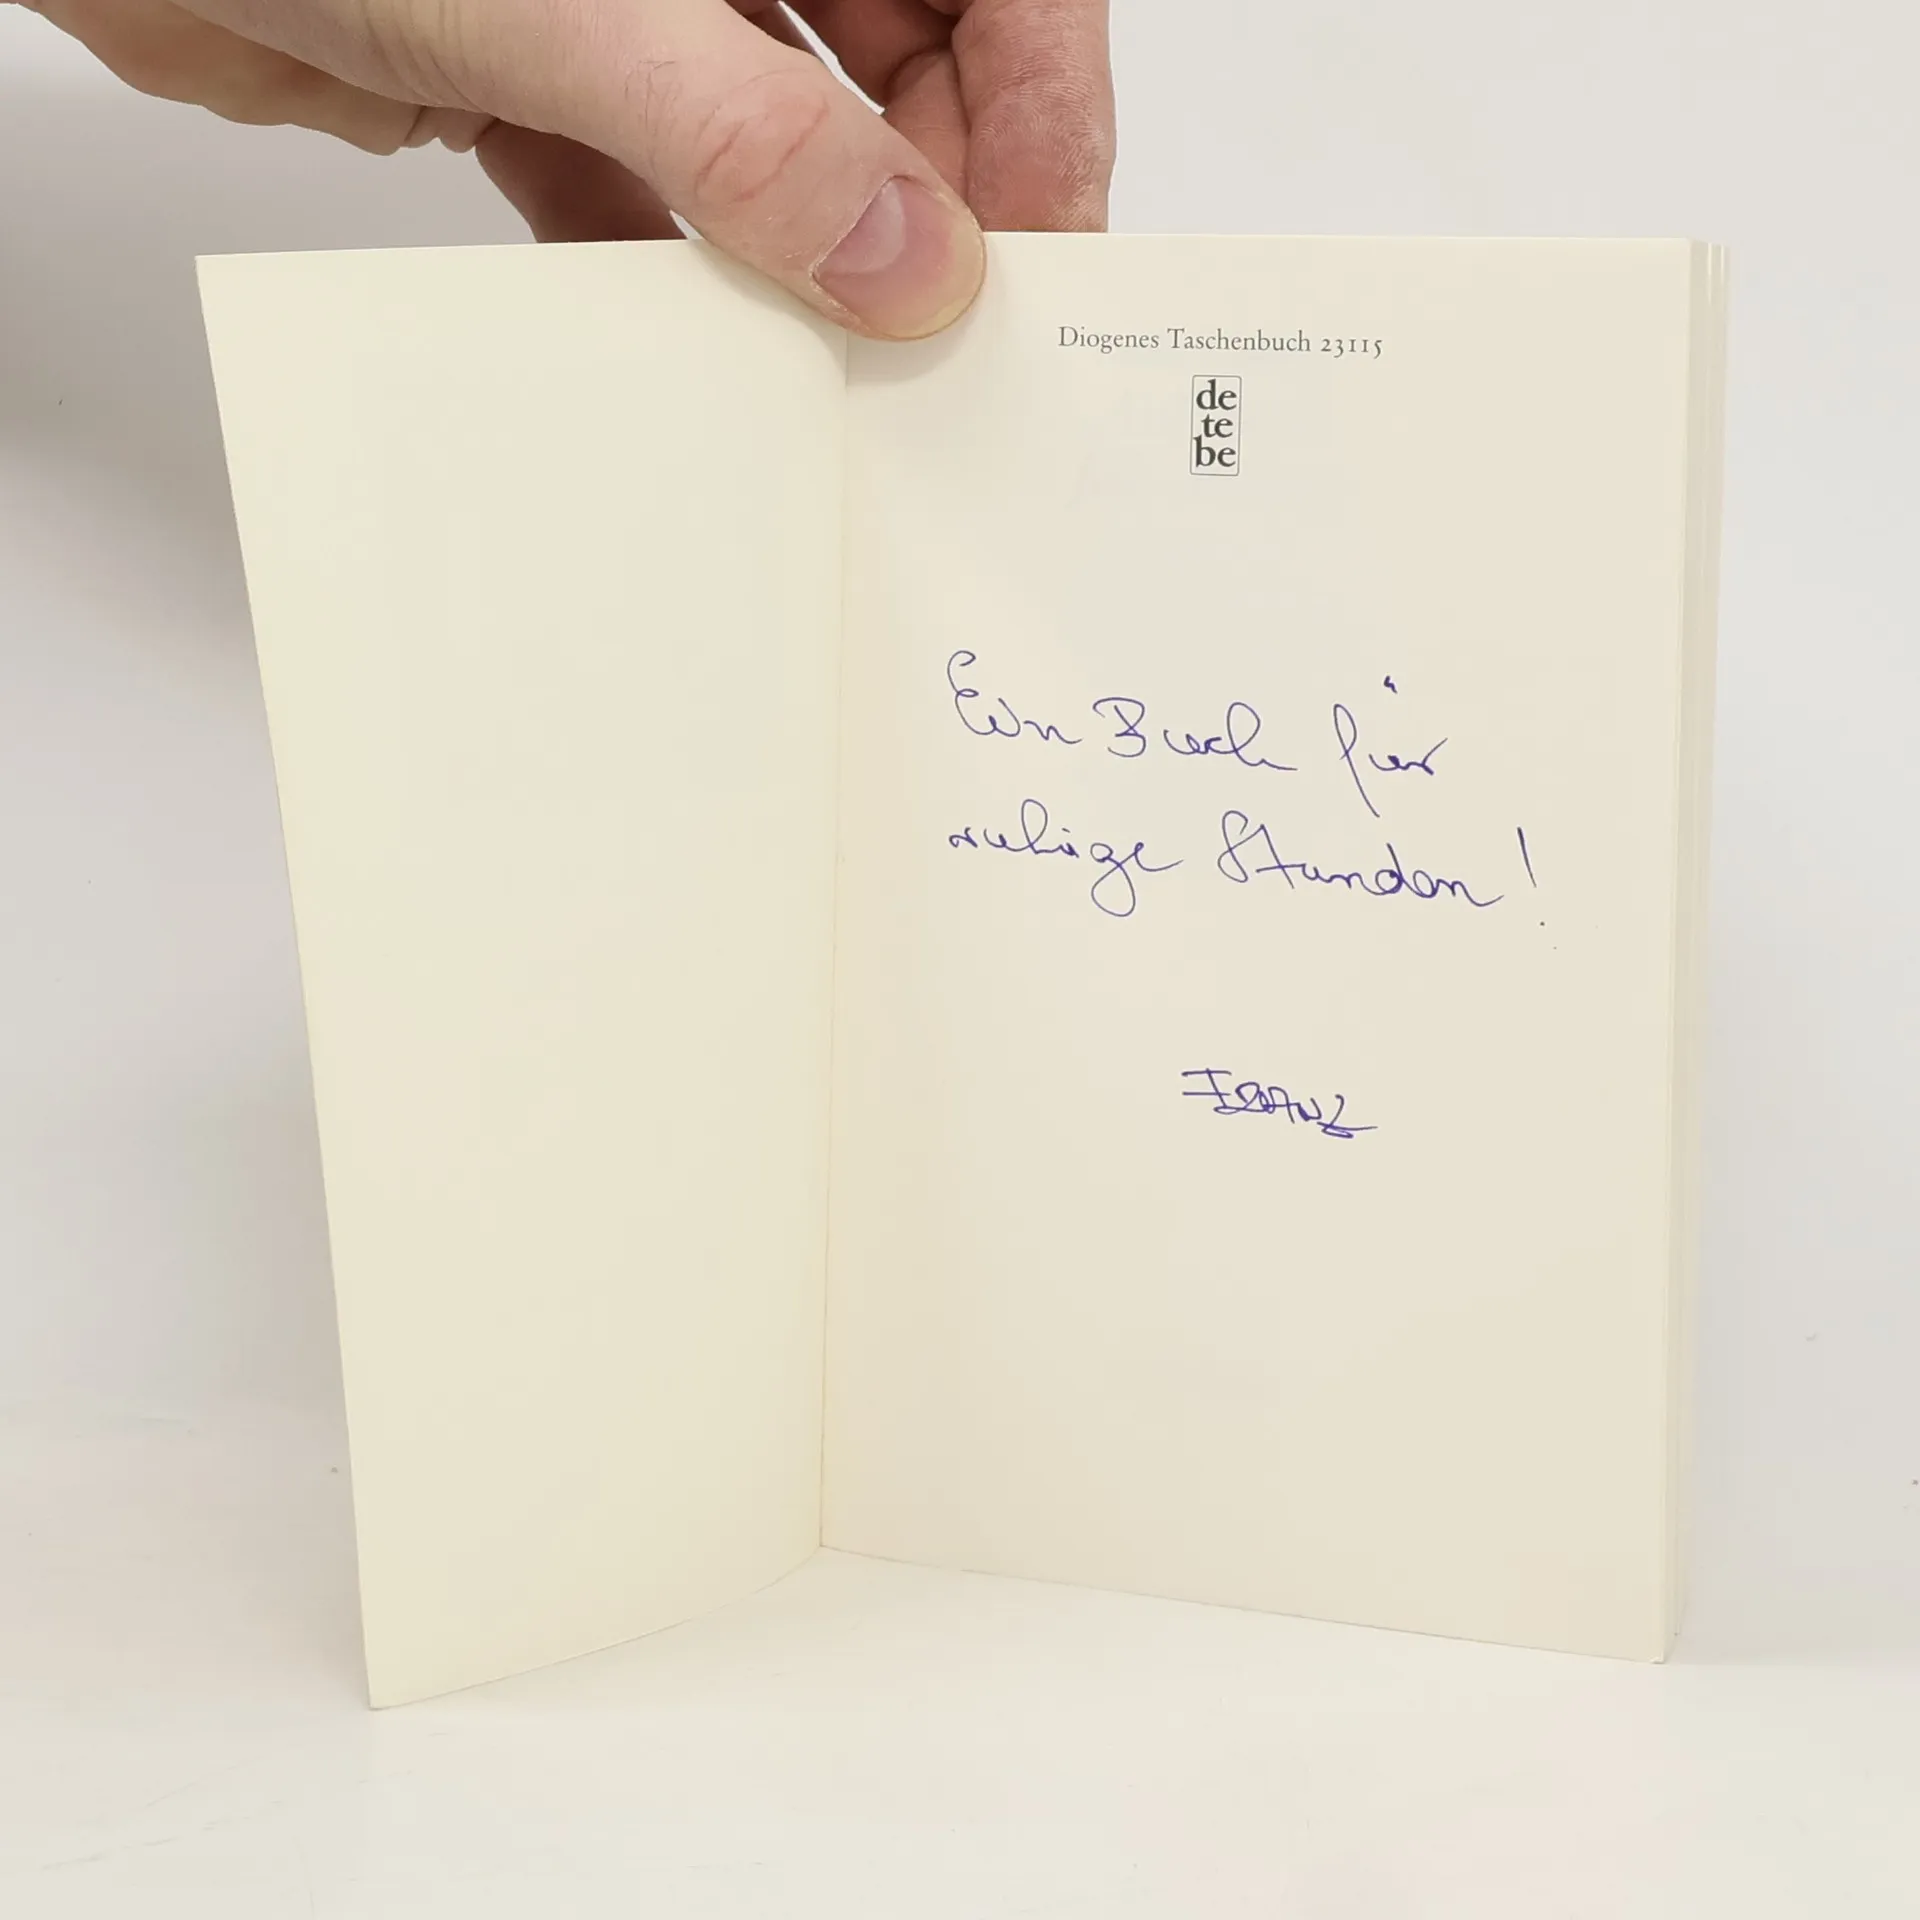 Diogenes Taschenbuch 23115
de
te
be
Ein Buch für
ruhige Stunden!
FRANZ